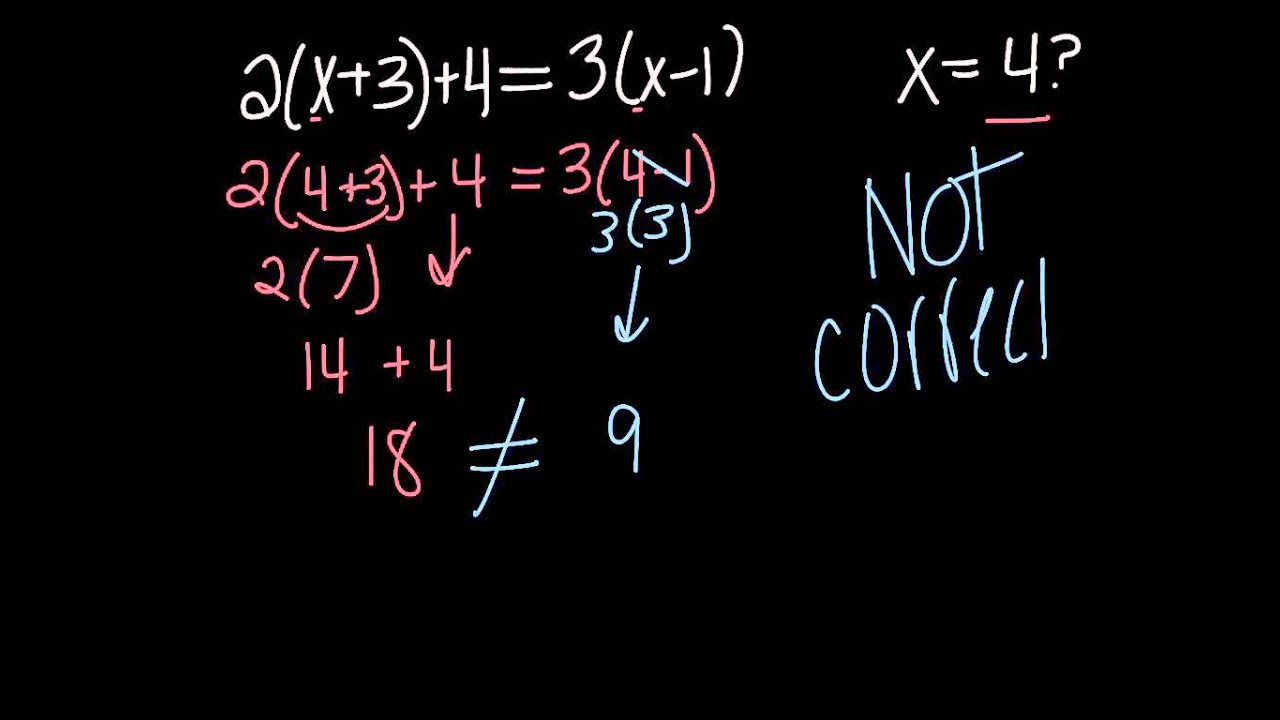 2(x+3)+4=3(x-1) x=4?
2(4+3)+4=3(4-1)
3(3)
2(7)
14 +4
18 ≠ 9
NOT
correct